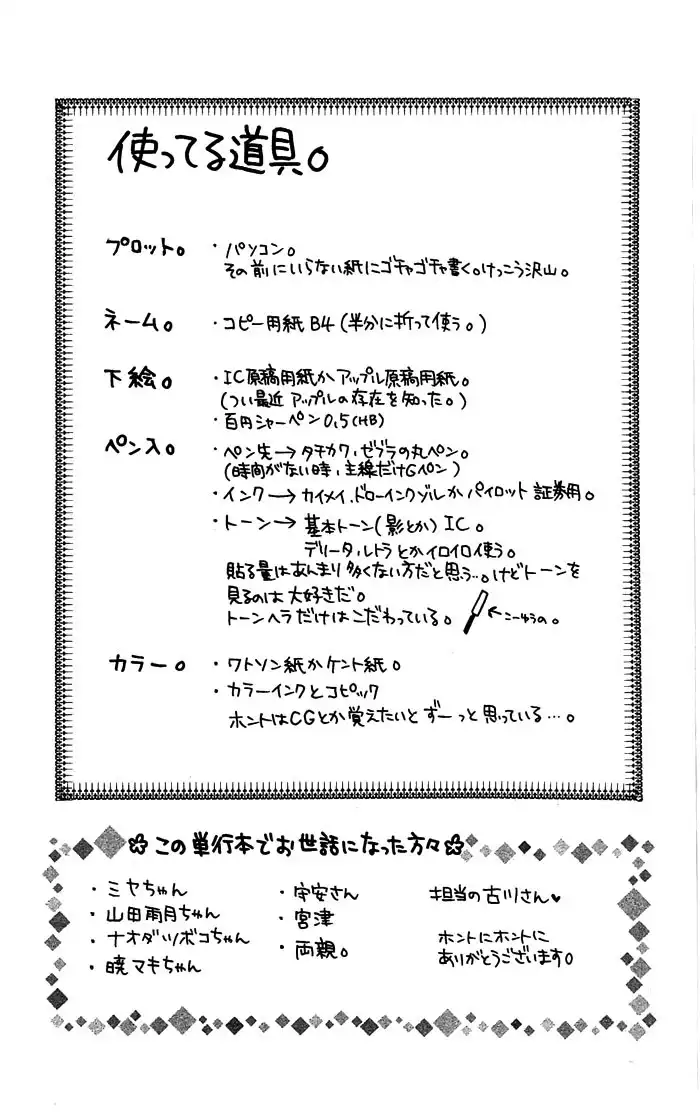 使ってる道具。
プロット。 ・パソコン。
その前にいらない紙にゴチャゴチャ書く。けっこう沢山。
ネーム。 ・コピー用紙B4(半分に折って使う。)
下絵。 ・IC原稿用紙かアップル原稿用紙。
(つい最近アップルの存在を知った。)
・百円シャーペン0.5(HB)
ペン入。 ・ペン先→タチカワ、ゼブラの丸ペン。
(時間がない時、主線だけGペン)
・インク→カイメイ、ドローインクゾルかパイロット証券用。
・トーン→基本トーン(影とか)IC。
デリータ、レトラとかイロイロ使う。
貼る量はあんまり多くない方だと思う…。けどトーンを
見るのは大好きだ。
トーンヘラだけはこだわっている。 ←こーゆうの。
カラー。 ・ワトソン紙かケント紙。
・カラーインクとコピック
ホントはCGとか覚えたいとずーっと思っている…。
この単行本でお世話になった方々
・ミヤちゃん
・山田雨月ちゃん
・ナオダツボコちゃん
・暁マキちゃん
・宇安さん
・宮津
・両親。
担当の古川さん♥
ホントにホントに
ありがとうございます。